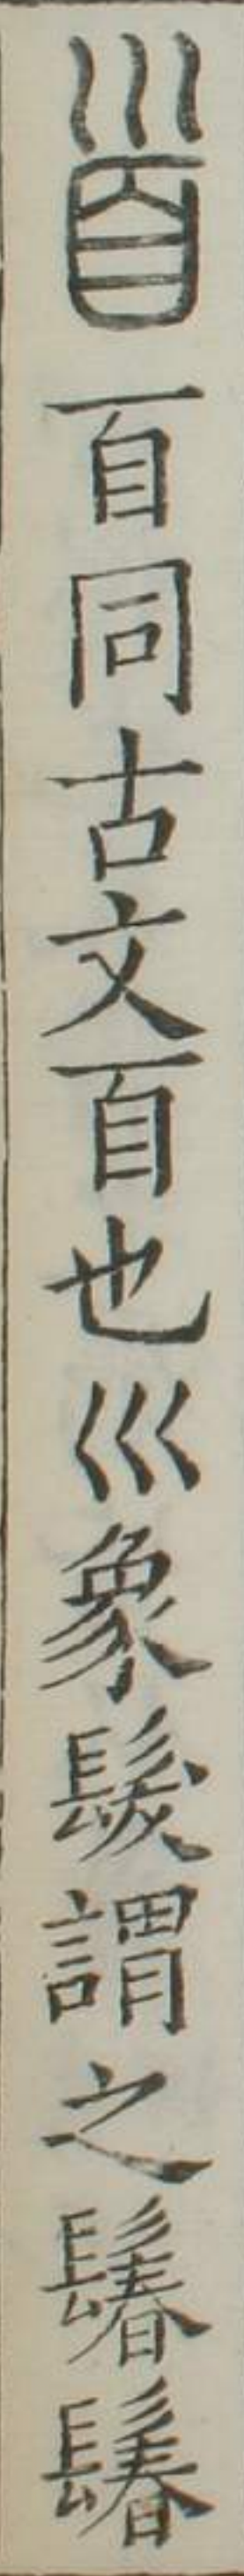 𩠐𦣻同古文𦣻也巛象髮謂之鬊鬊